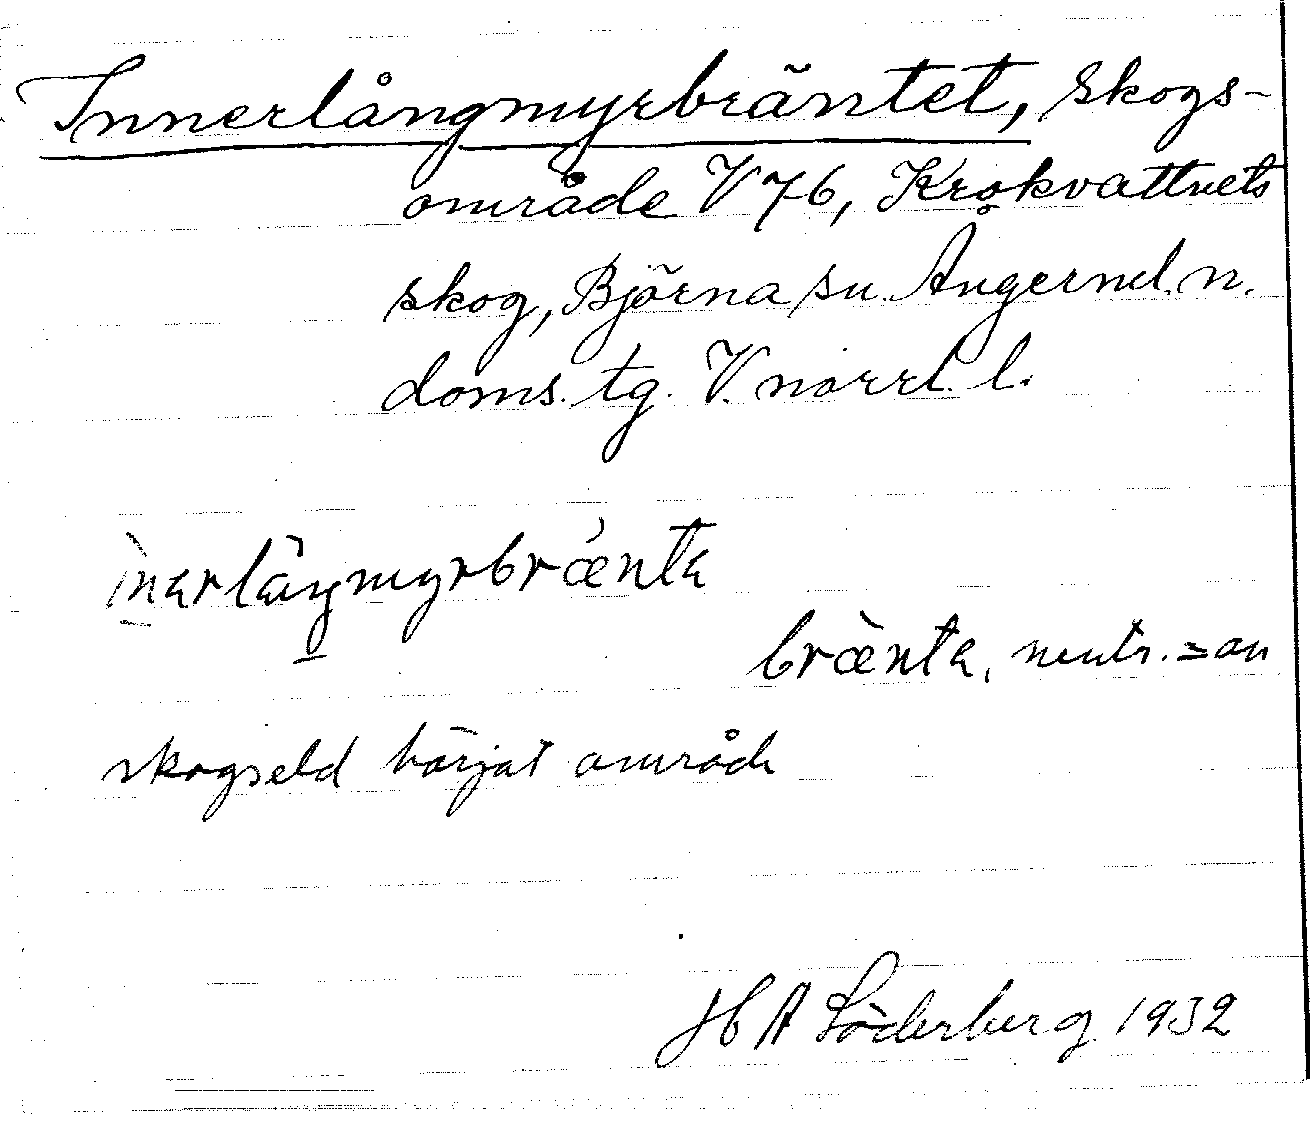 Innerlångmyrbräntet, Skogs-
område V 76, Krokvattnets
skog, Björna sn. Ångerml. n.
doms. tg. V. norrl. l.
inarlåŋmyrbrænta
brænta, neutr. = av
skogseld härjat område
H A Söderberg 1932